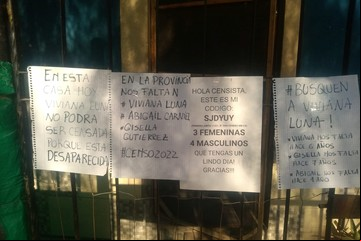 EN ESTA
CASA HOY
VIVIANA LUNA
NO PODRA
SER CENSADA
PORQUE ESTA
DESAPARECIDA
EN LA PROVINCIA
NOS FALTAN
# VIVIANA LUNA
# ABIGAIL CARNIEL
# GISELLA
GUTIERREZ
#CENSO2022
HOLA CENSISTA,
ESTE ES MI
CODIGO:
SJDYUY
3 FEMENINAS
4 MASCULINOS
QUE TENGAS UN
LINDO DIA!
GRACIAS!!!
#BUSQUEN
A VIVIANA
LUNA-!
VIVIANA NOS FALTA
HACE 6 AÑOS
GISELLA NOS FALTA
HACE 7 AÑOS
ABIGAIL NOS FALTA
HACE 1 AÑO